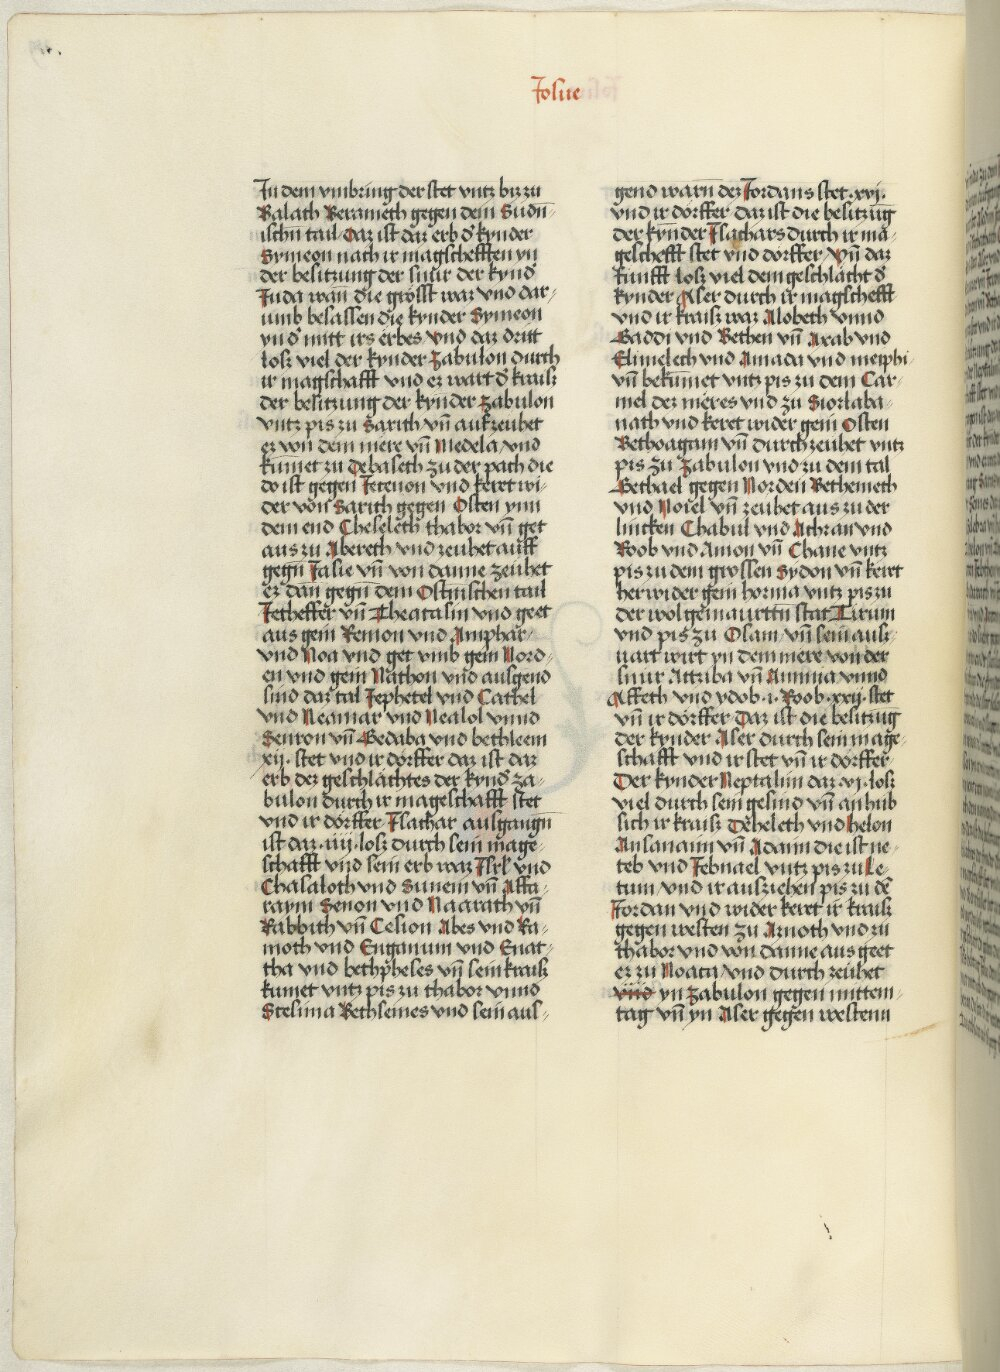 Josue
Jn dem vmbring der stet vntz biz zu
Balath Berameth gegen dem Sudn̄-
ischn̄ tail Daz ist daz erb d̕ kynder
Symeon nach ir magschefften yn
der besitzung der snür der kynd̕
Juda wan̄ die gröst waz vnd dar-
umb besassen die kynder Symeon
yn d̕ mitt irs erbes vnd daz dritt
losz viel der kynder Zabulon durch
ir magschafft vnd ez wart d̕ kraisz
der besitzung der kynder Zabulon
vntz pis zu Sarith vn̄ aufzeuhet
ez von dem mere vn̄ Medela vnd
kumet zu Debaseth zu der pach die
do ist gegen Jetenon vnd keret wi-
der von Sarith gegen Osten ynn
dem end Cheseleth thabor vn̄ get
aus zu Abereth vnd zeuhet auff
gegn̄ Jasie vn̄ von danne zeuhet
ez dan gegn̄ dem Ostnischen tail
Jetheffer vn̄ Theatasin vnd geet
aus gein Remon vnd Amphar-
vnd Noa vnd get vmb gein Nord-
en vnd gein Nathon vnd ausgend
sind daz tal Jephetel vnd Cathel
vnd Neamar vnd Nealol vnnd
Senron vn̄ Gedaba vnd bethleem
xij. stet vnd ir dörffer daz ist daz
erb dez geschlächtes der kynd̕ za-
bulon durch ir mageschafft stet
vnd ir dörffer Jsachar ausgangn̄
ist daz .iiij. losz durch sein mage-
schafft vnd sein erb waz Jsrl̕ vnd
Chasaloth vnd Sunem vn̄ Affa-
raym Senon vnd Naarath vn̄
Rabbith vn̄ Cesion Abes vnd Ra-
moth vnd Enganum vnd Enat-
tha vnd bethpheses vn̄ sein kraisz
kumet vntz pis zu thabor vnnd
Stesima Bethsemes vnd sein aus-
gend warn̄ dez Jordans stet .xvj.
vnd ir dörffer daz ist die besitzūg
der kynder Jsachars durch ir mā-
geschefft stet vnd dörffer Vn̄ daz
funfft losz viel dem geschlächt d̕
kynder Aser durch ir magschefft
vnd ir kraisz waz Alobeth vnnd
Gaddi vnd Bethen vn̄ Axab vnd
Elimelech vnd Amada vnd meiphi
vn̄ bekumet vntz pis zu dem Car-
mel dez meres vnd zu Siorlaba-
nath vnd keret wider gein Osten
Bethoagam vn̄ durchzeuhet vntz
pis zu Zabulon vnd zu dem tal
Gethael gegen Norden Bethemeth
vnd Noiel vn̄ zeuhet aus zu der
lincken Chabul vnd Athran vnd
Roob vnd Amon vn̄ Chane vntz
pis zu dem grossen Sydon vn̄ keret
her wider gein horma vntz pis zu
der wolgemaurttn̄ stat Tirum
vnd pis zu Osam vn̄ sein ausz-
uart wirt yn dem mere von der
snur Attziba vn̄ Amma vnnd
Affeth vnd ydob .i. Roob .xxij. stet
vn̄ ir dörffer Daz ist die besitzūg
der kynder Aser durch sein mage-
schafft vnd ir stet vn̄ ir dörffer
Der kynder Neptalim daz .vj. losz
viel durch sein gesind vn̄ anhub
sich ir kraisz Deheleth vnd helon
Ansanaim vn̄ Adami die ist ne-
teb vnd Jebnael vntz pis zu Le-
tum vnd ir ausziehen pis zu dē
Jordan vnd wider keret ir kraisz
gegen westen zu Arnoth vnd zu
thabor vnd von danne aus geet
ez zu Noata vnd durch zeuhet
vnd yn Zabulon gegen mittem-
tag vn̄ yn Aser gegen westenn